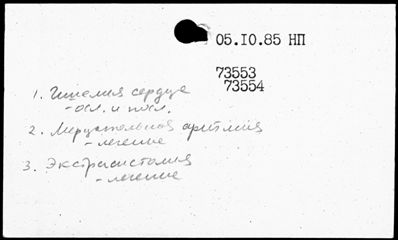 05.IO.85 НП
73553
73554
1. Ишемия сердце
- осл. и посл.
2. Мерцательная аритмия
- лечение
3. Экстрасистолия
- лечение